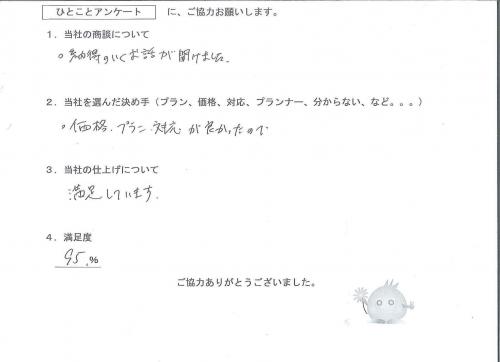 ひとことアンケート に、ご協力お願いします。
1．当社の商談について
○納得のいくお話が聞けました。
2．当社を選んだ決め手（プラン、価格、対応、プランナー、分からない、など。。。）
○価格．プラン．対応が良かったので
3．当社の仕上げについて
満足しています．
4．満足度
95.%
ご協力ありがとうございました。